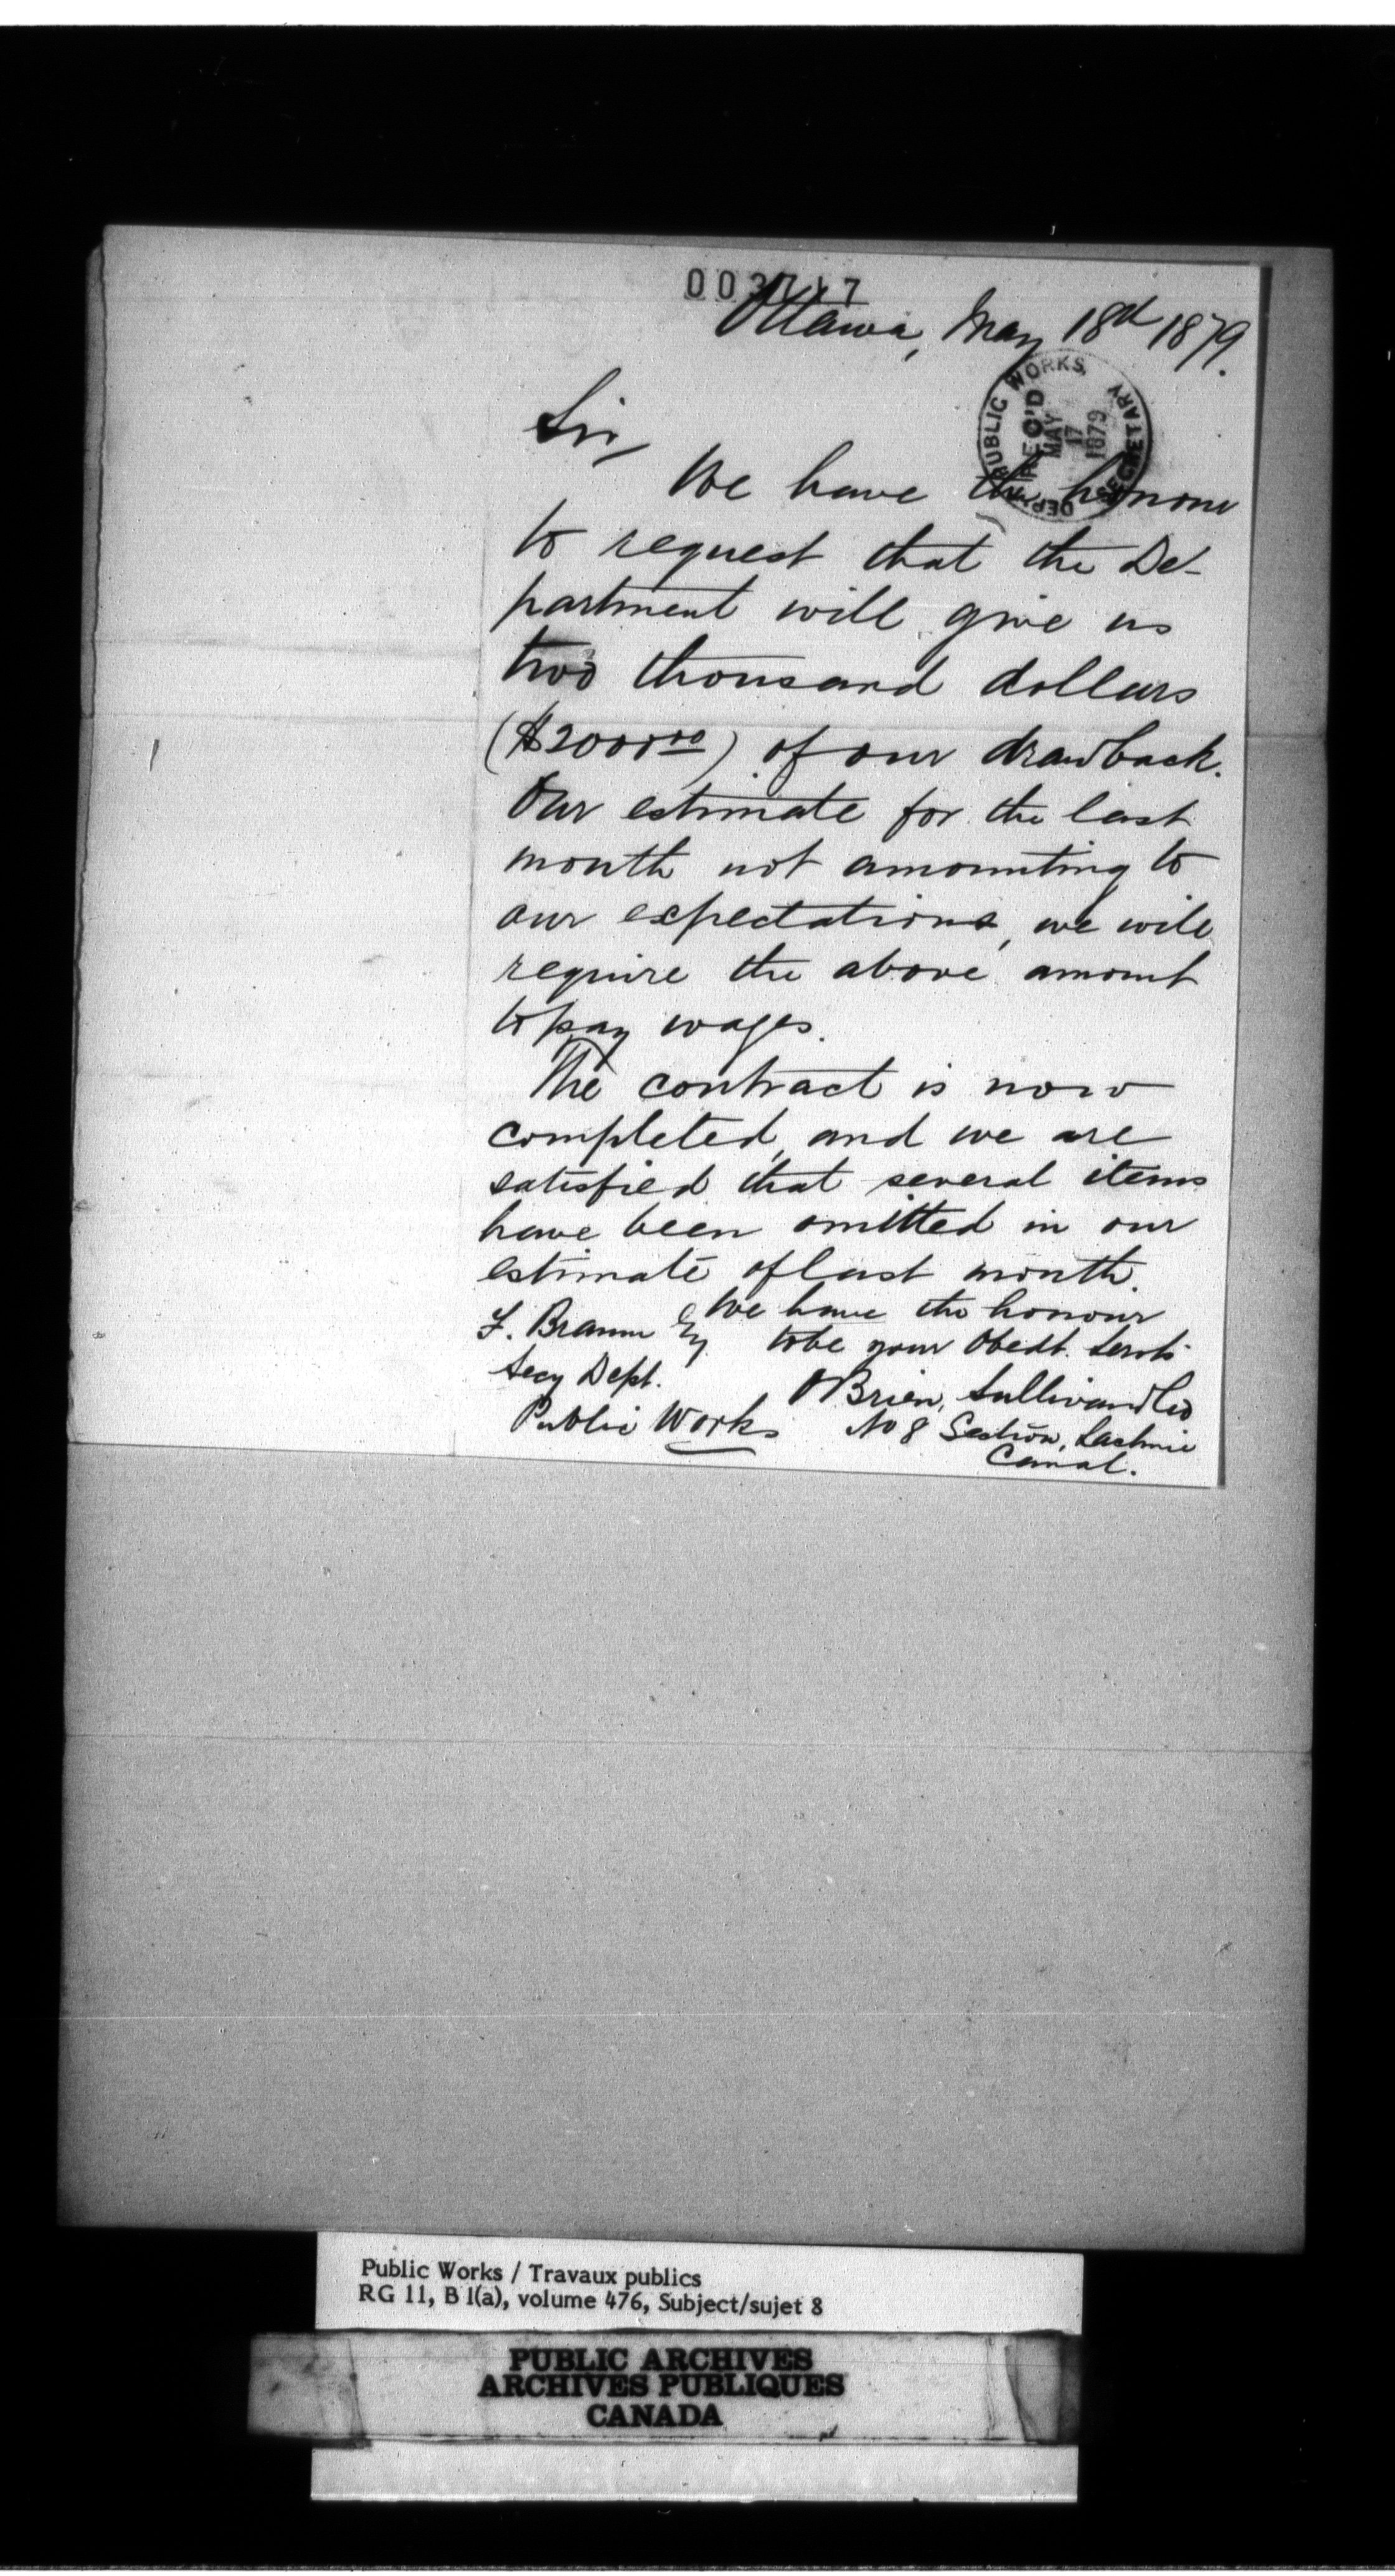 003717
Ottawa, May 18d 1879.
DEPT PUBLIC WORKS, SECRETARY
REC'D
MAY
17
1879
Sir,
We have the honour
to request that the De-
partment will give us
two thousand dollars
($2000.00) of our drawback.
Our estimate for the last
month not amounting to
our expectations, we will
require the above amount
to pay wages.
The contract is now
completed, and we are
satisfied that several items
have been omitted in our
estimate of last month.
We have the honour
to be your Obedt. Servts
F. Braun Esq
Secy Dept.
Public Works
O'Brien, Sullivan & Co
No 8 Section, Lachine
Canal.
Public Works / Travaux publics
RG 11, B 1(a), volume 476, Subject/sujet 8
PUBLIC ARCHIVES
ARCHIVES PUBLIQUES
CANADA